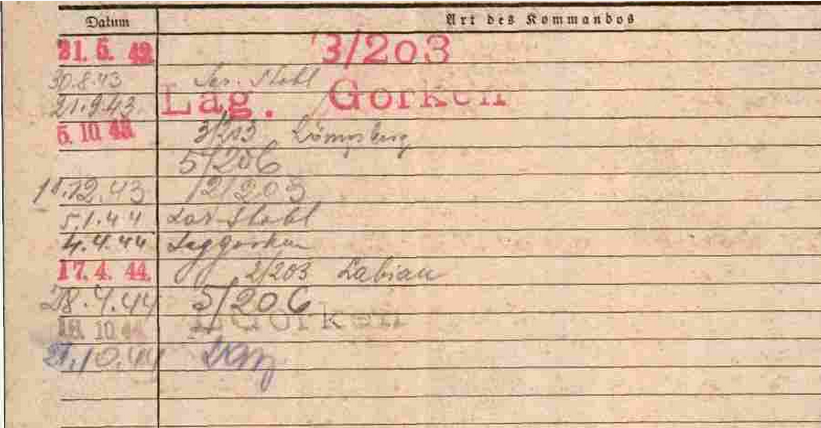 Datum Art des Kommandos
31. 5. 43 3/203
30.8.43
21.9.43. Lag. Gorken
5. 10. 43 3/203 Königsberg
5/206
11.12.43 2/203
5.1.44 Laz. Stabl
4.4.44 Lag gorken
17. 4. 44 2/203 Labiau
28.4.44 5/206
18. 10. 44 Gorken
21.10.44